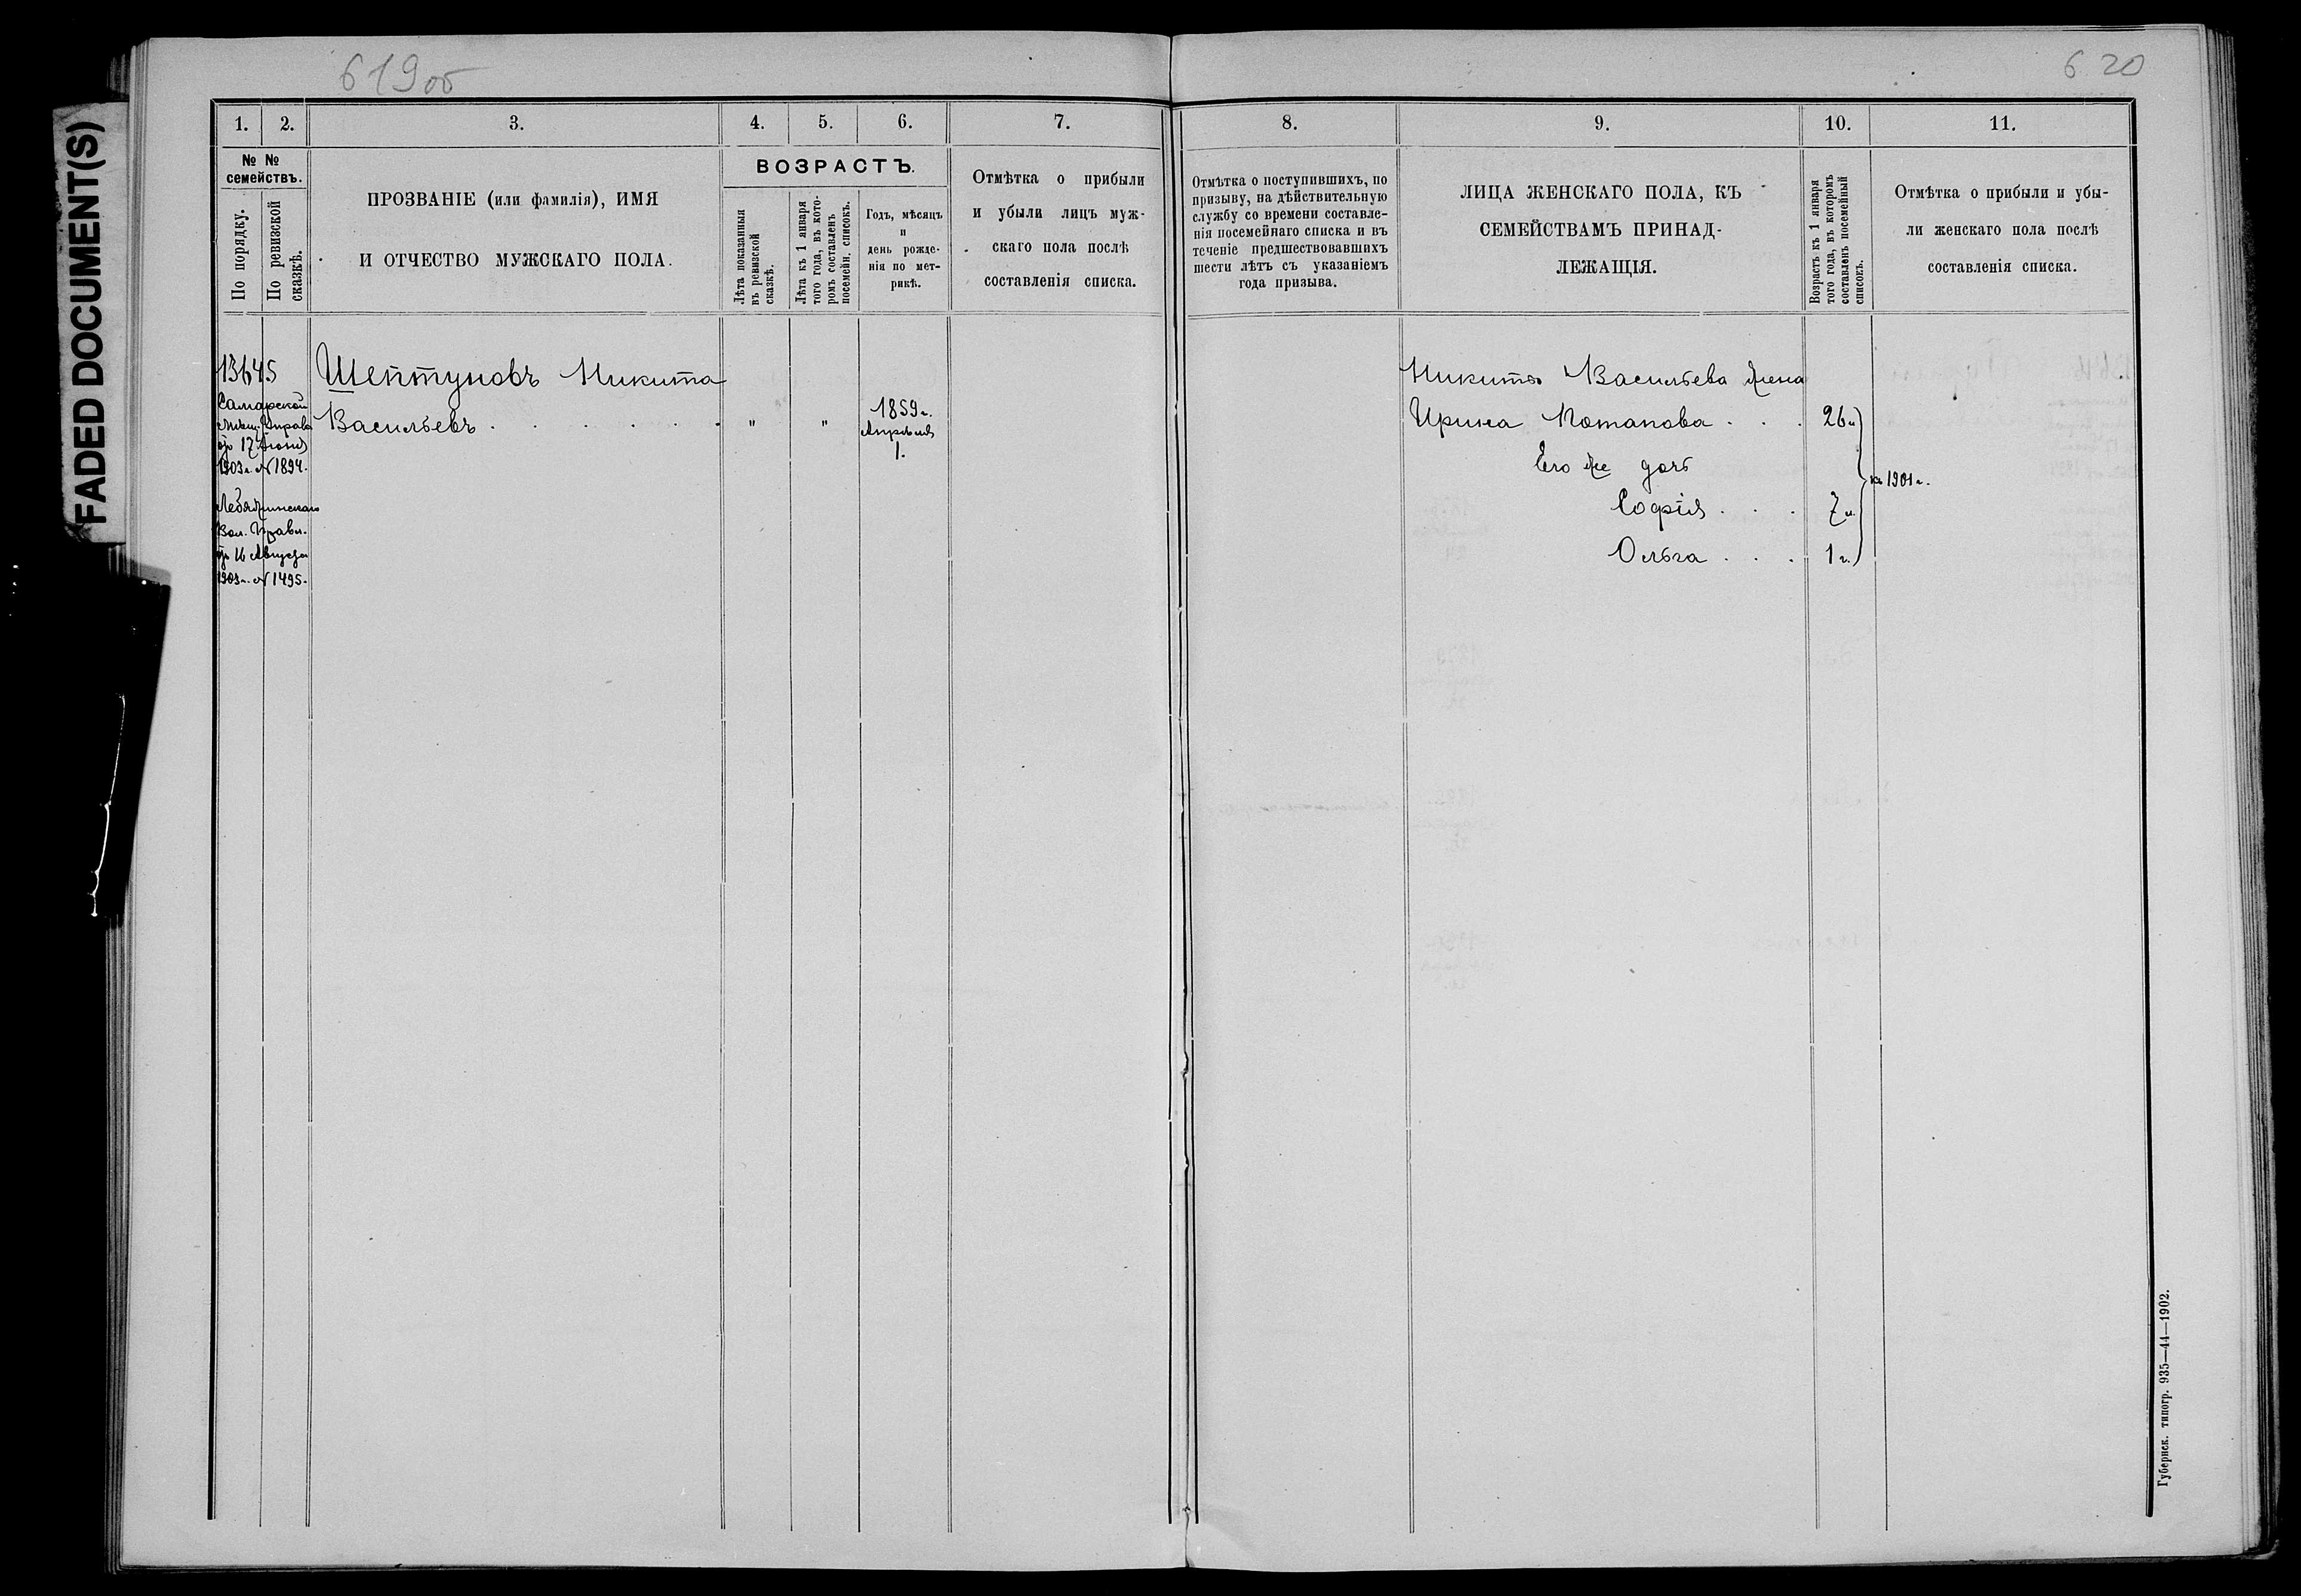 FADED DOCUMENT(S)
619об
6 20
1.
2.
3.
4.
5.
6.
7.
№ №
семействъ.
По порядку.
По ревизской
сказкѣ.
ПРОЗВАНІЕ (или фамилія), ИМЯ
И ОТЧЕСТВО МУЖСКАГО ПОЛА.
ВОЗРАСТЪ.
Лѣта показанныя
въ ревизской
сказкѣ.
Лѣта къ 1 января
того года, въ кото-
ромъ составленъ
посемейн. списокъ.
Годъ, мѣсяцъ
и
день рожде-
нія по мет-
рикѣ.
Отмѣтка о прибыли
и убыли лицъ муж-
скаго пола послѣ
составленія списка.
13645
Самарской
Мѣщ. Управы
отъ 17 Іюня
1903 г. № 1894.
Лебяжинскаго
Вол. Правл.
отъ 16 Августа
1903 г. № 1495.
Шептуновъ Никита
Васильевъ . . . . . .
"
"
1859 г.
Апрѣля
1.
8.
9.
10.
11.
Отмѣтка о поступившихъ, по
призыву, на дѣйствительную
службу со времени составле-
нія посемейнаго списка и въ
теченіе предшествовавшихъ
шести лѣтъ съ указаніемъ
года призыва.
ЛИЦА ЖЕНСКАГО ПОЛА, КЪ
СЕМЕЙСТВАМЪ ПРИНАД-
ЛЕЖАЩІЯ.
Возрастъ къ 1 января
того года, въ которомъ
составленъ посемейный
списокъ.
Отмѣтка о прибыли и убы-
ли женскаго пола послѣ
составленія списка.
Никиты Васильева жена
Ирина Потапова . . . 26 л
Его же дочь
Софія . . . 7 л.
Ольга . . . 1 г.
къ 1901 г.
Губернск. типогр. 935—44—1902.